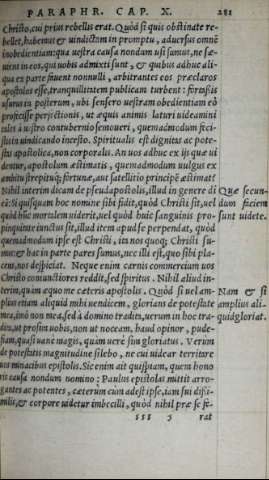 PARAPHR. CAP. X. 281
Christo, cui prius rebellis erat. Quòd si quis obstinate re-
bellet, habemus & uindictam in promptu, aduersus omnē
inobedientiam: qua uestra causa nondum usi sumus, ne sæ-
uiant in eos, qui nobis admixti sunt, & quibus adhuc ali-
qua ex parte fauent nonnulli, arbitrantes eos præclaros
apostolos esse, tranquillitatem publicam turbent: fortassis
usurus ea posterum, ubi sensero uestram obedientiam eò
profecisse perfectionis, ut æquis animis laturi uideamini
tales à uestro contubernio semoueri, quemadmodum feci-
stis in uindicando incesto. Spiritualis est dignitas ac pote-
stas apostolica, non corporalis. An uos adhuc ex ijs quæ ui
dentur, apostolum æstimatis, quemadmodum uulgus ex
ambitu strepituq; fortunæ, aut satellitio principē æstimat?
Nihil interim dicam de pseudapostolis, illud in genere di
cā: Si quisquam hoc nomine sibi fidit, quòd Christi sit, uel
quòd hūc mortalem uiderit, uel quòd huic sanguinis pro-
pinquitate iunctus sit, illud item apud se perpendat, quòd
quemadmodum ipse est Christi, ita nos quoq; Christi su-
mus: & hac in parte pares sumus, nec illi est, quo sibi pla-
cens, nos despiciat. Neque enim carnis commercium nos
Christo coniunctiores reddit, sed spiritus. Nihil aliud in-
terim, quàm æquo me cæteris apostolis. Quòd si uel am-
plius etiam aliquid mihi uendicem, glorians de potestate
mea, imò non mea, sed à domino tradita, uerum in hoc tra-
dita, ut prosim uobis, non ut noceam, haud opinor, pude-
fiam, quasi uanè magis, quàm uerè sim gloriatus. Verum
de potestatis magnitudine silebo, ne cui uidear territare
uos minacibus epistolis. Sic enim ait quispiam, quem hono
ris causa nondum nomino: Paulus epistolas mittit arro-
gantes ac potentes, cæterùm cùm adest ipse, iam sui dissi-
milis, & corpore uidetur imbecilli, quòd nihil præ se fe-
Quæ secun-
dum faciem
sunt uidete.
Nam & si
amplius ali-
quid gloriat.
sss 5 rat